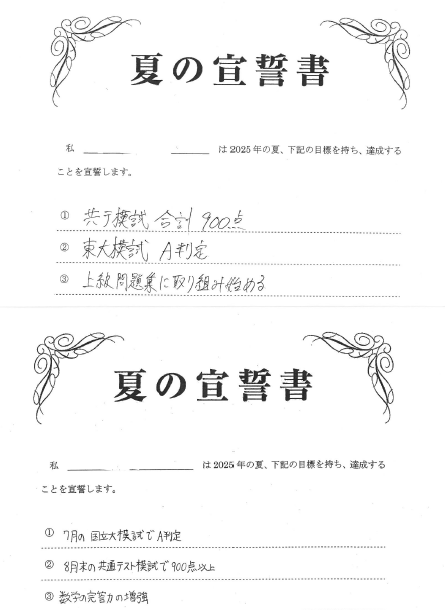 夏の宣誓書
私 は2025年の夏、下記の目標を持ち、達成する
ことを宣誓します。
① 共テ模試 合計 900点
② 東大模試 A判定
③ 上級問題集に取り組み始める
夏の宣誓書
私 は2025年の夏、下記の目標を持ち、達成する
ことを宣誓します。
① 7月の 国立大模試でA判定
② 8月末の共通テスト模試で900点以上
③ 数学の完答力の増強